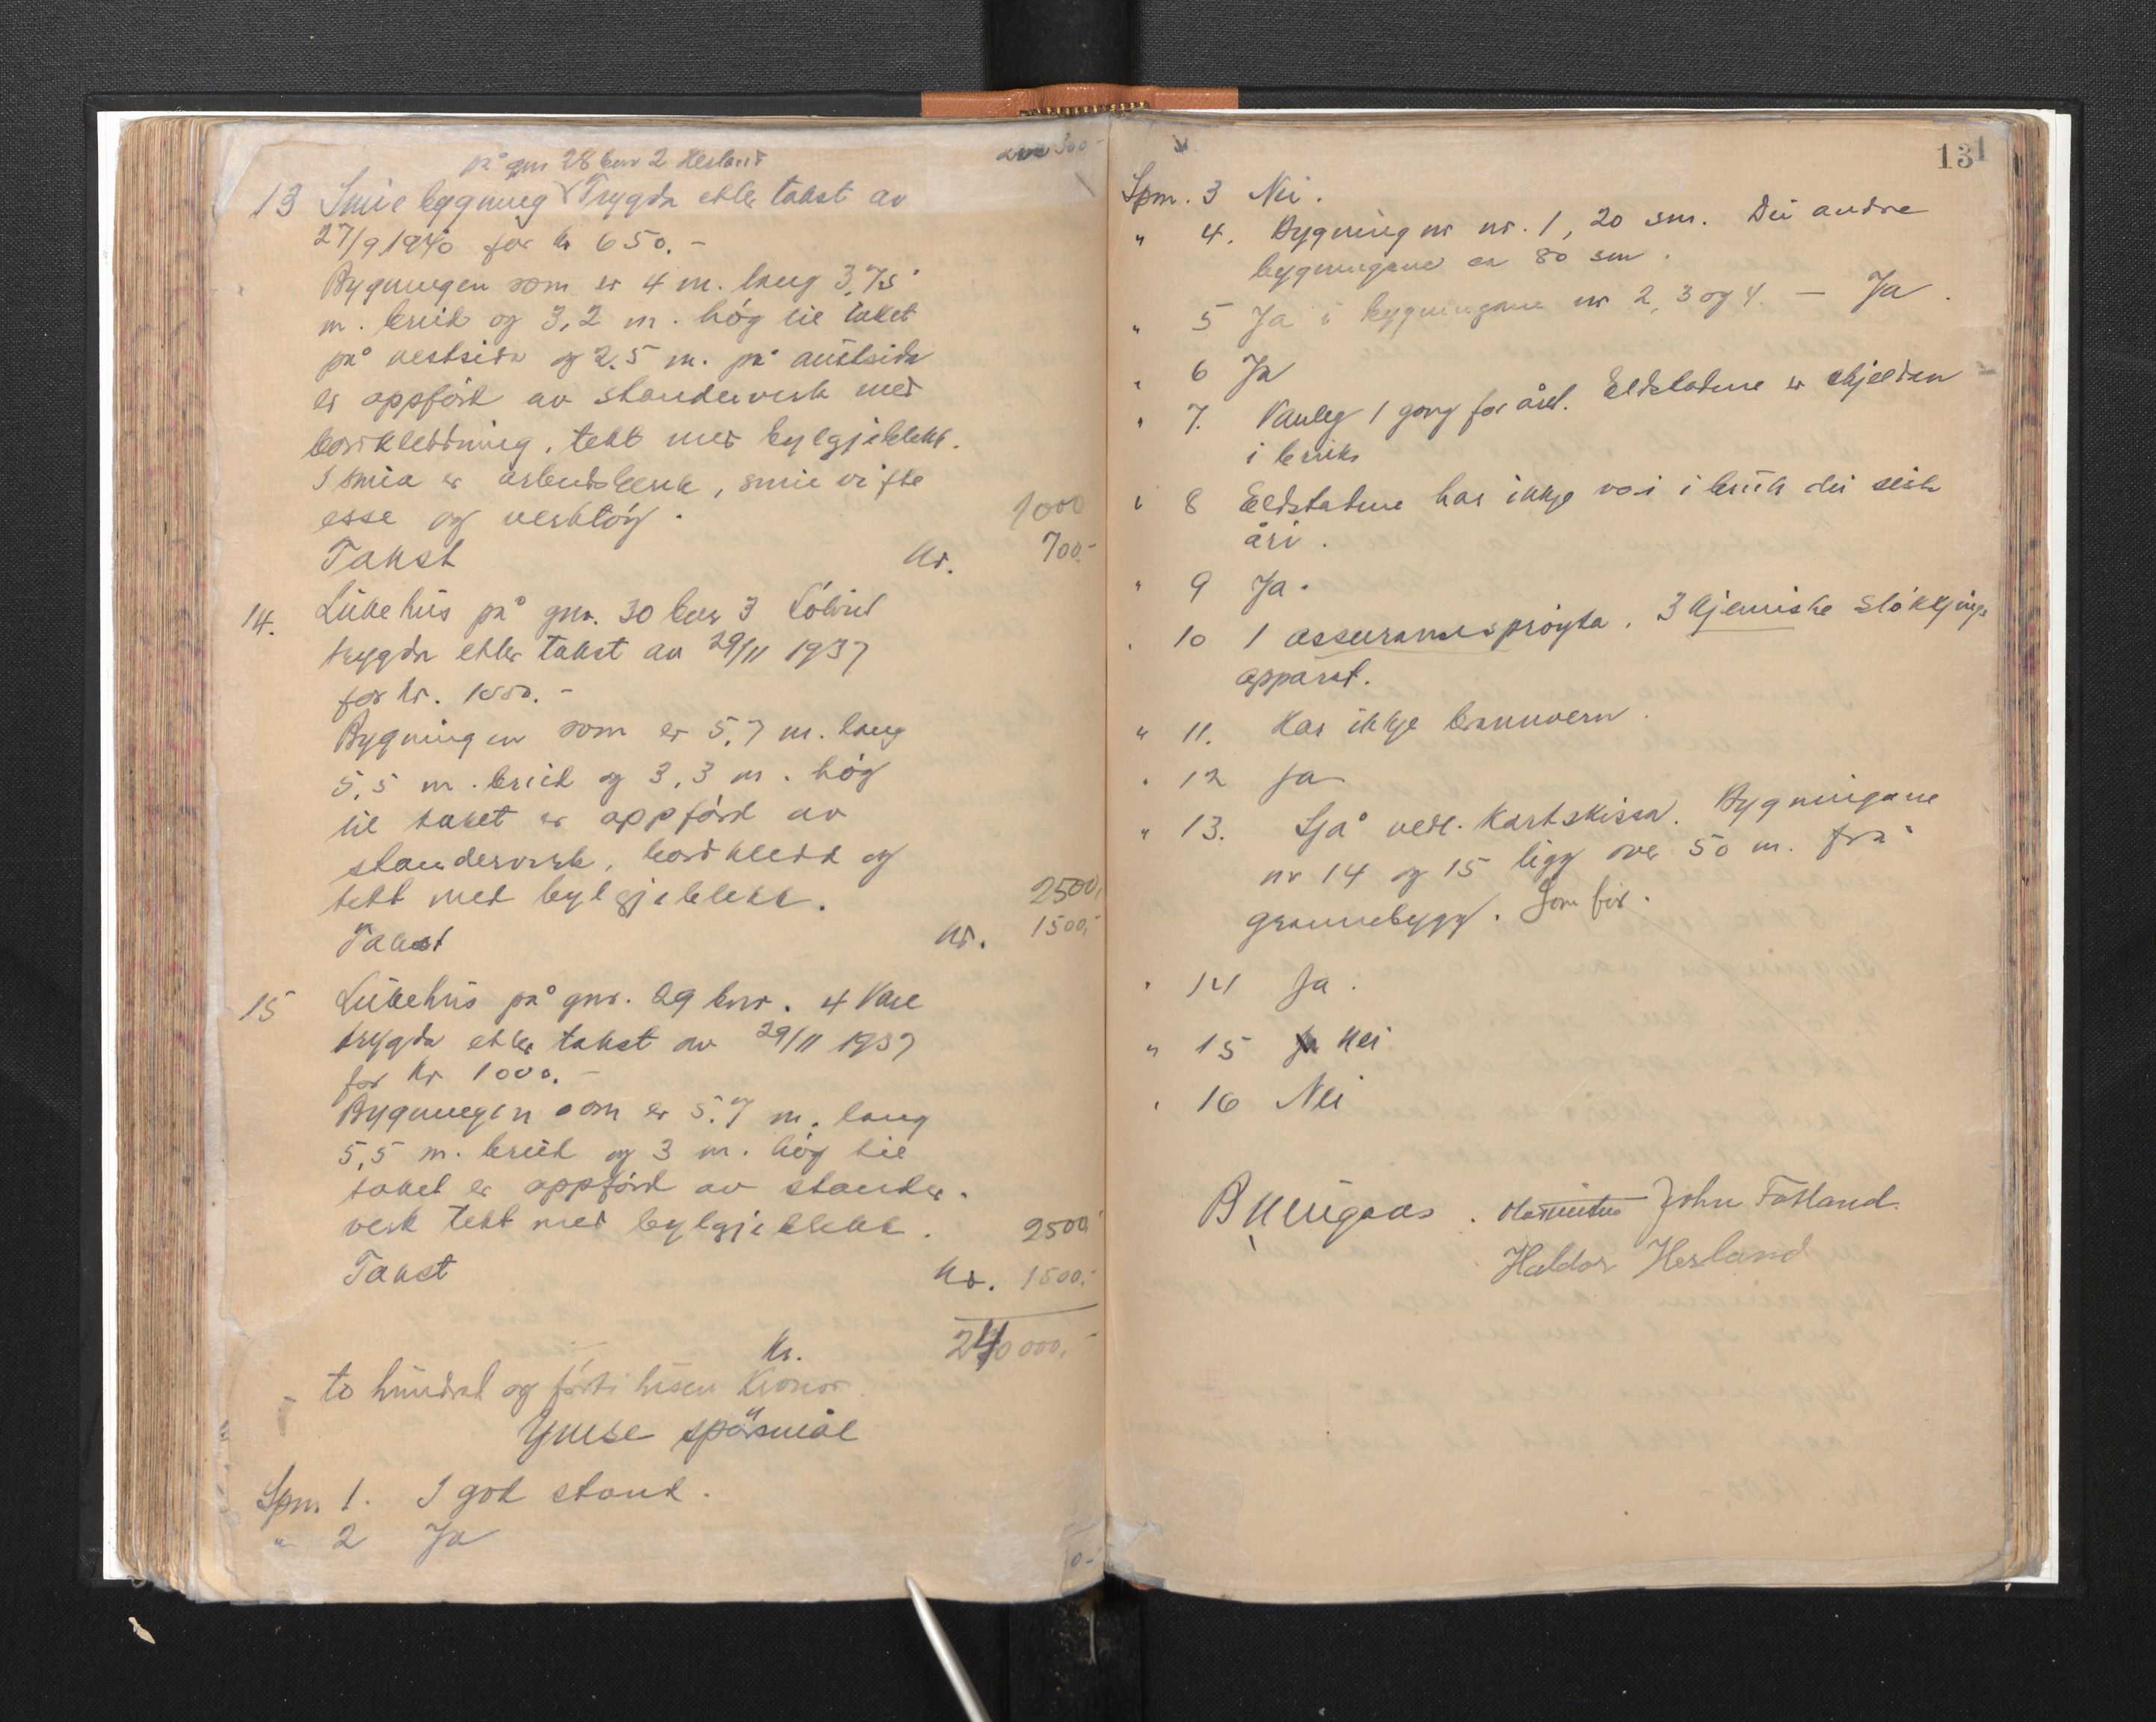 på gnr 28 bnr 2 Hesland
300-
13 Smie bygning Trygda etter takst av
27/9 1940 for kr 650.-
Bygningen som er 4 m. lang 3,75
m. breid og 3,2 m. høg til taket
på vestsida og 2,5 m. på austsida
er oppført av standerverk med
bordkledning, tekt med bylgjeblekk.
I smia er arbeidsbenk, smie vifte
esse og verktøy.
1000
Takst Kr. 700.-
14. Lübehus på gnr. 30 bnr 3
trygda etter takst av 29/11 1937
for kr.
Bygningen som er 5,7 m. lang
5,5 m. breid og 3,3 m. høg
til taket er oppførd av
standerverk, bordkledd og
tekt med bylgjeblekk.
2500,
Takst Kr. 1500,-
15 Lübehus på gnr. 29 bnr. 4
trygda etter takst av 29/11 1937
for kr 1000.-
Bygningen som er 5,7 m. lang
5,5 m. breid og 3 m. høg til
taket er oppførd av stander-
verk tekt med bylgjeblekk.
2500
Takst Kr. 1500.-
Kr. 240000,-
- to hundrad og førti tusen Kronor
Ymse spørsmål
Spm. 1. I god stand.
" 2 Ja
131
Spm. 3 Nei.
" 4. Bygning nr. 1, 20 sm. Dei andre
bygningane ca 80 sm.
" 5 Ja i bygningane nr 2, 3 og 4. — Ja.
" 6 Ja
" 7. Vanleg 1 gong for året. Eldstadene er skjeldan
i bruk
" 8 Eldstadene har ikkje vori i bruk dei siste
åri.
" 9 Ja.
" 10 1 assuransesprøyta. 3 kjemiske sløkkjings
apparat.
" 11. Har ikkje brannvern.
" 12 Ja
" 13. Sjå vedl. Kartskissa. Bygningane
nr 14 og 15 ligg over 50 m. frå
grannebygg. Som før.
" 14 Ja.
" 15 Ja Nei
" 16 Nei
John Fatland
Haldor Hesland